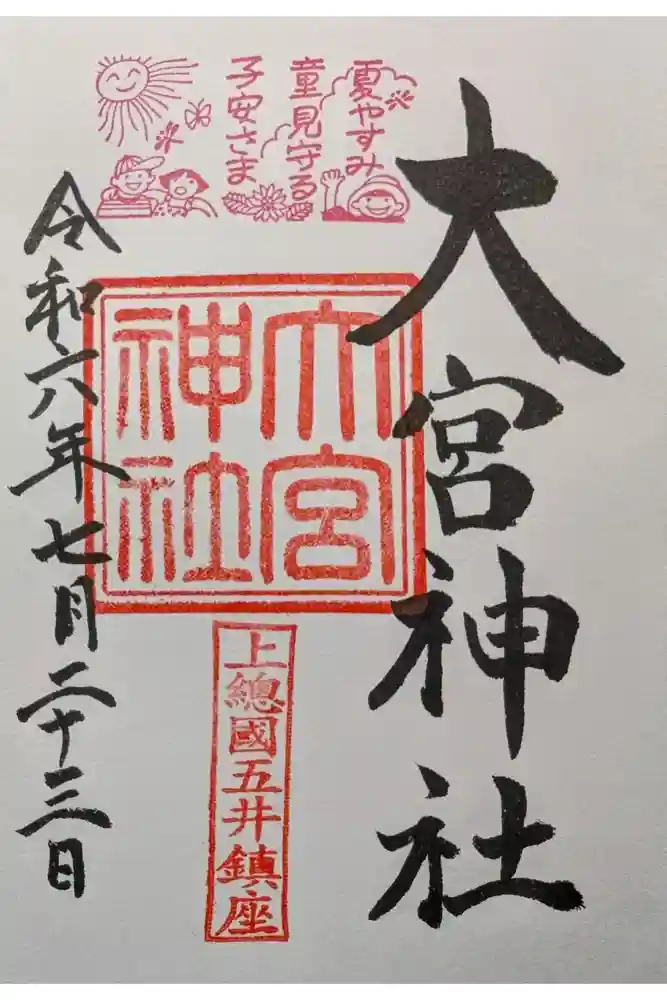 夏やすみ
童見守る
子安さま
大宮神社
大宮
神社
上總國五井鎮座
令和六年七月二十三日